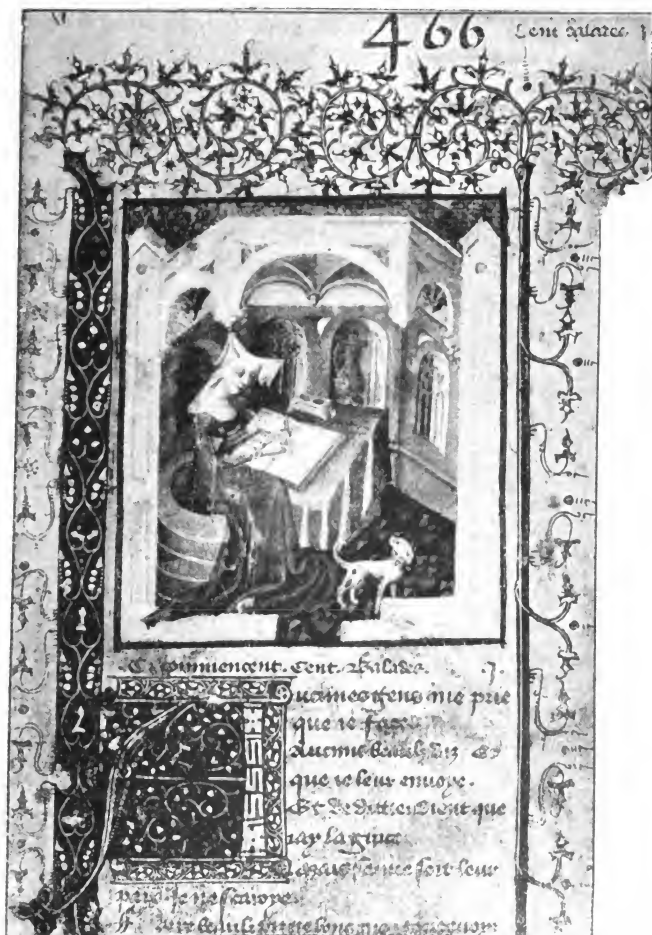 466 Cent balades
Cy commencent. Cent. Balades. .j.
Aucunes gens me prie
que ie face
Aucuns beaulz diz Et
que ie leur enuoye.
Et de dittier dient que
iay la grace
sauue soit leur
paix Je ne scauroye